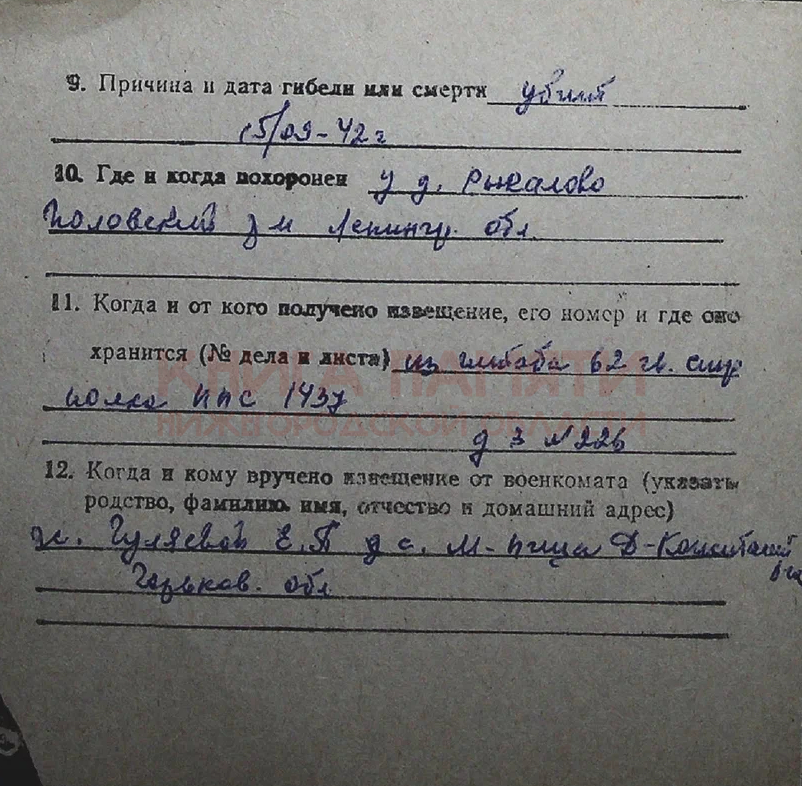 9. Причина и дата гибели или смерти убит
15/09-42 г
10. Где и когда похоронен у д. Рыкалово
Половский Ленингр. обл.
11. Когда и от кого получено извещение, его номер и где оно
хранится (№ дела и листа) из штаба 62 гв. стр
полка ппс 1437
д 3 № 226
12. Когда и кому вручено извещение от военкомата (указать
родство, фамилию, имя, отчество и домашний адрес)
Гуляевой Е.П д с. М-пица Д-Константин
Горьков. обл
КНИГА ПАМЯТИ
НИЖЕГОРОДСКОЙ ОБЛАСТИ